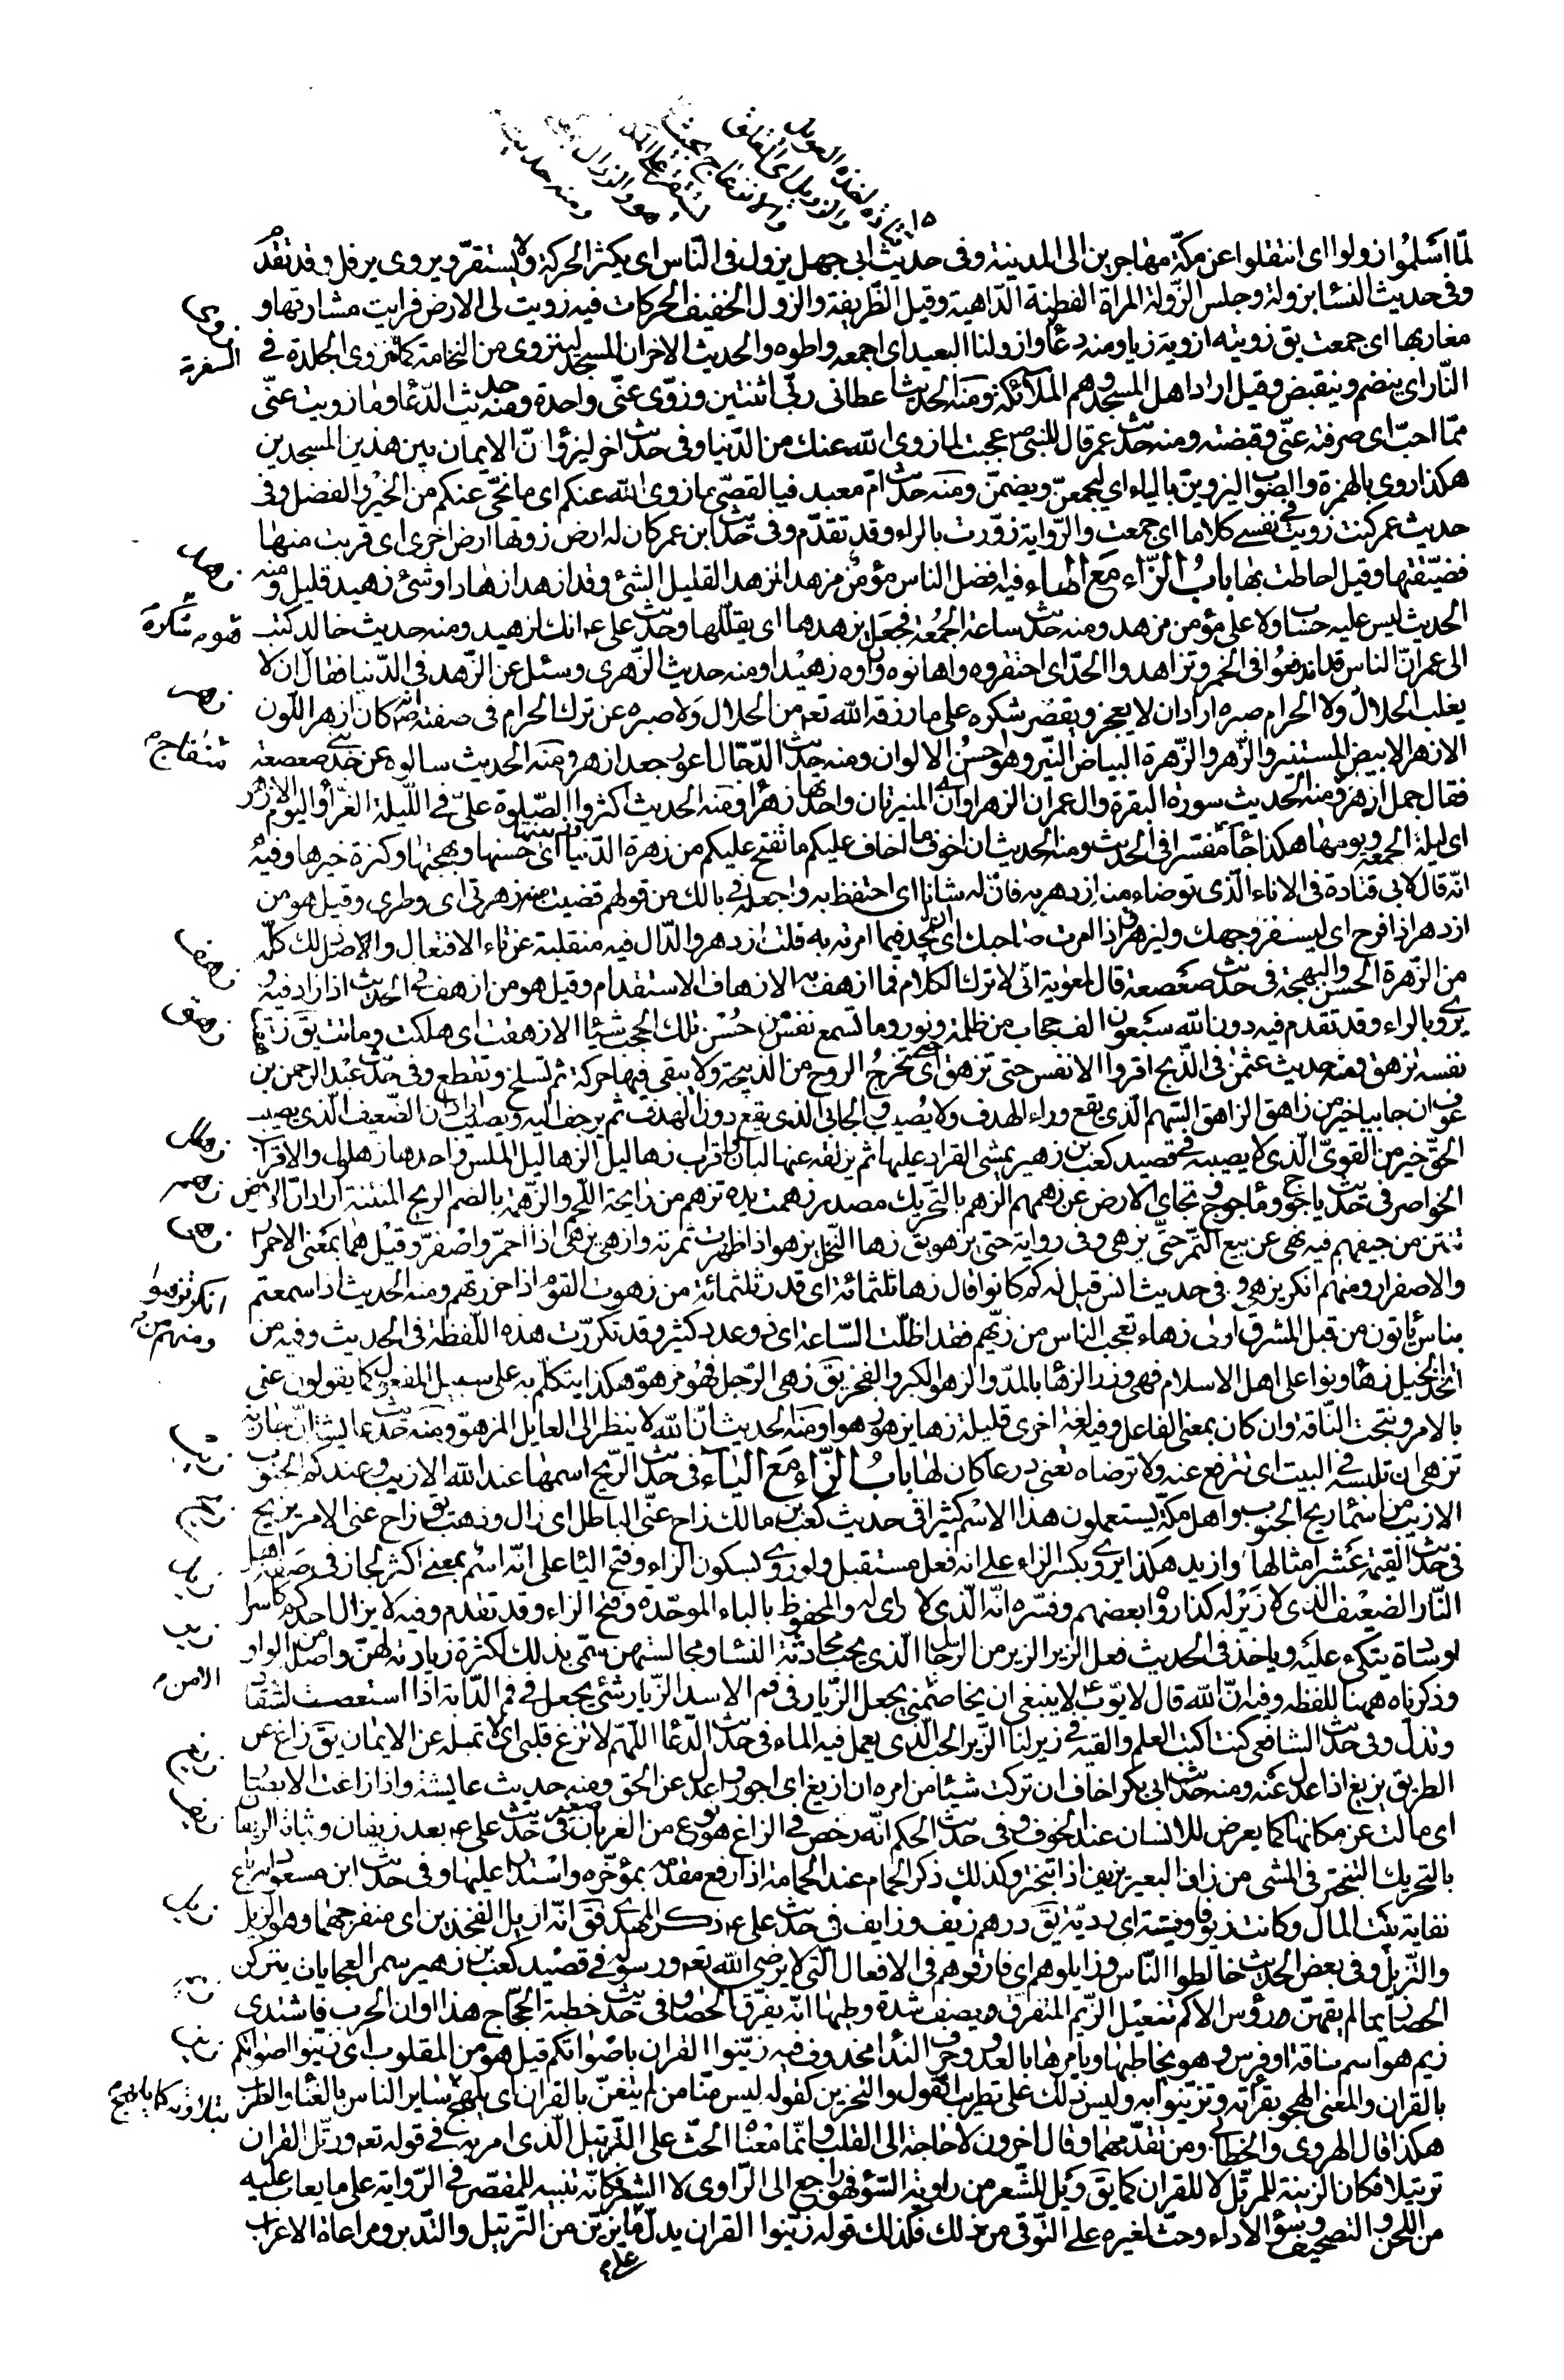 لمّا اسلموا زولوا اى انتقلوا عن مكّة مهاجرين الى المدينة وفى حديث ابى جهل يزول فى النّاس اى يكثر الحركة ولا يستقرّ ويروى يرفل وقد تقدّم
وفى حديث النسا بزولة وجلس الزّولة المراة الفطنة الدّاهية وقيل الظّريفة والزول الخفيف الحركات فيه زويت لى الارض فرايت مشارقها و
مغاربها اى جمعت يق زويته ازويه زيا ومنه دعا وازو لنا البعيد اى اجمعه واطوه والحديث الاخر ان المسجد لينزوى من النخامة كما تنزوى الجلدة فى
النّار اى ينضم وينقبض وقيل اراد اهل المسجد وهم الملائكة ومنه الحديث اعطانى ربّى اثنتين وزوّى عنّى واحدة ومنه حديث الدّعا وما زويت عنّى
ممّا احبّ اى صرفته عنّى وقبضته ومنه حديث عمر قال للنبى ص عجبت لما زوى الله عنك من الدّنيا وفى حديث اخر ليزؤانّ الايمان بين هذين المسجدين
هكذا روى بالهمزة والصّواب ليزوينّ بالياء اى ليجمعنّ ويضمنّ ومنه حديث امّ معبد فيا لقصىّ ما زوى الله عنكم اى ما نحّى عنكم من الخير والفضل وفى
حديث عمر كنت زويت فى نفسى كلاما اى جمعت والرّواية زوّرت بالراء وقد تقدّم وفى حديث ابن عمر كان له ارض زوتها ارض اخرى اى قربت منها
فضيّقتها وقيل احاطت بها باب الزّاء مع الهاء فيه افضل الناس مؤمن مزهد المزهد القليل الشئ وقد ازهد ازهادا وشئ زهيد قليل ومنه
الحديث ليس عليه حساب ولا على مؤمن مزهد ومنه حديث ساعة الجمعة فجعل يزهدها اى يقلّلها وحديث على ع انك لزهيد ومنه حديث خالد كتب
الى عمر انّ الناس قد اندفعوا فى الخمر وتزاهدوا الحدّ اى احتقروه واهانوه وراوه زهيدا ومنه حديث الزّهرى وسئل عن الزّهد فى الدّنيا فقال ان لا
يغلب الحلال شكره ولا الحرام صبره اراد ان لا يعجز ويقصر شكره على ما رزقه الله تعم من الحلال ولا صبره عن ترك الحرام فى صفته ص انّه كان ازهر اللّون
الازهر الابيض المستنير والزّهر والزّهرة البياض النيّر وهو احسن الالوان ومنه حديث الدّجّال اعور جعد ازهر ومنه الحديث سالوه عن جدّ بنى صعصعة
فقال جمل ازهر ومنه الحديث سورة البقرة وال عمران الزهراوان اى المنيرتان واحدتها زهرا ومنه الحديث اكثروا الصّلوة علىّ فى اللّيلة الغرّا واليوم الازهر
اى ليلة الجمعة ويومها هكذا جا مفسّرا فى الحديث ومنه الحديث ان اخوف ما اخاف عليكم ما تفتح عليكم من زهرة الدّنيا وزينتها اى حسنها وبهجتها وكثرة خيرها وفيه
انّه قال لابى قتادة فى الاناء الّذى توضاء منه ازدهر به فانّ له شانا اى احتفظ به واجعله فى بالك من قولهم قضيت منه زهرتى اى وطرى وقيل هو من
ازدهر اذا فرح اى ليسفر وجهك وليزهر واذا امرت صاحبك ان يجدّ فيما امرته به قلت له ازدهر والدّال فيه منقلبة عن تاء الافتعال والاصل ذلك كلّه
من الزّهرة الحسن والبهجة فى حديث صعصعة قال لمعوية انّى لاترك الكلام فما ازهف به الازهاف الاستقدام وقيل هو من ازهف فى الحديث اذا زاد فيه و
يروى بالراء وقد تقدم فيه دون الله سبعون الف حجاب من ظلمة ونور وما تسمع نفس من حسّ تلك الحجب شيئا الا زهقت اى هلكت وماتت يق زهقت
نفسه تزهق ومنه حديث عثمن فى الذّبح اقروا الانفس حتى تزهق اى حتى تخرج الروح من الذبيحة ولا يبقى فيها حركة ثم تسلخ وتقطع وفى حديث عبد الرحمن بن
عوف ان جابيا خير من زاهق الزاهق السّهم الّذى يقع وراء الهدف ولا يصيب والحابى الذى يقع دون الهدف ثم يزحف اليه ويصيب اراد ان الضّعيف الّذى يصيب
الحقّ خير من القوىّ الّذى لا يصيبه فى قصيد كعب بن زهير يمشى القراد عليها ثم يزلقه عنها لبان واقراب زهاليل الزهاليل الملس واحدها زهلول والاقراب
الخواصر فى حديث ياجوج وماجوج وتجاى الارض عن زهمهم الزهم بالتّحريك مصدر زهمت يده تزهم من رايحة اللّحم والزّهمة بالضم الريح المنتنة اراد انّ الارض
تنتن من جيفهم فيه نهى عن بيع الثّمر حتّى يزهى وفى رواية حتى يزهو يق زها النّخل يزهو اذا ظهرت ثمرته وازهى يزهى اذا احمرّ واصفرّ وقيل هما بمعنى الاحمرار
والاصفرار ومنهم انكر يزهى فى حديث انس قيل له كم كانوا قال زها ثلثمائة اى قدر ثلثمائة من زهوت القوم اذا حزرتهم ومنه الحديث اذا سمعتم
بناس ياتون من قبل المشرق اولى زهاء تعجب الناس من زيّهم فقد اظلّت السّاعة اى ذوى عدد كثير وقد تكرّرت هذه اللّفظة فى الحديث وفيه من
اتّخذ الخيل زها ونوا على اهل الاسلام فهى وزر الزّها بالمدّ والزهو الكبر والفخر يق زهى الرّجل فهو مزهوّ هكذا يتكلّم به على سبيل المفعول كما يقولون عنى
بالامر ونتجت النّاقة وان كان بمعنى الفاعل وفيه لغة اخرى قليلة زها يزهو زهوا ومنه الحديث انّ الله لا ينظر الى العايل المزهوّ ومنه حديث عايشة انّ جارية
تزهى ان تلبسه فى البيت اى تترفع عنه ولا ترضاه تعنى درعا كان لها باب الزّاء مع الياء فى حديث الرّيح اسمها عند الله الازيب وعندكم الجنوب
الازيب من اسما ريح الجنوب واهل مكّة يستعملون هذا الاسم كثيرا فى حديث كعب بن مالك زاح عنّى الباطل اى زال وذهب يق زاح عنى الامر يزيح
فى حديث القيمة عشر امثالها وازيد هكذا يروى بكسر الزاء على انه فعل مستقبل ولو روى بسكون الزاء وفتح اليا على انّه اسم بمعنى اكثر لجاز فى صفة اهل
النّار الضعيف الذى لا زير له كذا رواه بعضهم وفسّره انّه الّذى لا راى له والمحفوظ بالباء الموحّدة وفتح الزاء وقد تقدم وفيه لا يزال احدكم كاسرا
وساده يتّكى عليه وياخذ فى الحديث فعل الزير الزير من الرّجال الّذى يحب محادثة النسا ومجالستهن سمّى بذلك لكثرة زيارته لهنّ واصله من الواو
وذكرناه ههنا للفظه وفيه انّ الله قال لايّوب ع لا ينبغى ان يخاصمنى الا من يجعل الزّيار فى فم الاسد الزّيار شئ يجعل فى فم الدّابة اذا استعصت لتنقاد
وتذلّ وفى حديث الشافعى كنت اكتب العلم والقيه فى زير لنا الزّير الحبّ الّذى يعمل فيه الماء فى حديث الدّعا اللّهمّ لا تزغ قلبى اى لا تمله عن الايمان يق زاغ عن
الطريق يزيغ اذا عدل عنه ومنه حديث ابى بكر اخاف ان تركت شيئا من امره ان ازيغ اى اجور واعدل عن الحق ومنه حديث عايشة واذ زاغت الابصار
اى مالت عن مكانها كما يعرض للانسان عند الخوف وفى حديث الحكم انّه رخص فى الزاغ هو نوع من الغربان صغير فى حديث على ع بعد زيفان وثباته الزيفان
بالتحريك التبختر فى المشى من زاف البعير يزيف اذا تبختر وكذلك ذكر الحمام عند الحمامة اذا رفع مقدّمه بمؤخّره واستدار عليها وفى حديث ابن مسعود انه باع
نفاية بيت المال وكانت زيوفا وقسيّة اى رديّة يق درهم زيف وزايف فى حديث على ع ذكر المهدى فق انّه ازيل الفخذين اى منفرجهما وهو الزيل
والتّزيل وفى بعض الحديث خالطوا النّاس وزايلوهم اى فارقوهم فى الافعال الّتى لا يرضى الله تعم ورسوله فى قصيد كعب بن زهير سمر العجايات يتركن
الحصا زيما لم يقهنّ رؤس الاكم تنعيل الزّيم المتفرق ويصف شدة وطيها انّه يفرّق الحصا وفى حديث خطبة الحجّاج هذا اوان الحرب فاشتدى
زيم هو اسم ناقة او فرس وهو يخاطبها ويامرها بالعدو وحرف الندا محذوف فيه زيّنوا القران باصواتكم قيل هو من المقلوب اى زيّنوا اصواتكم
بالقران والمعنى الهجو بقرائته وتزيّنوا به وليس ذلك على تطريب القول والتحزين كقوله ليس منّا من لم يتغنّ بالقران اى يلهج ساير الناس بالغنا والطّرب
هكذا قال الهروى والخطابى ومن تقدّمهما وقال اخرون لا حاجة الى القلب وانّما معناه الحثّ على التّرتيل الّذى امر به فى قوله تعم ورتّل القران
ترتيلا فكان الزينة للمرتّل لا للقران كما يق ويل للشّعر من راوية السّوء فهو راجع الى الرّاوى لا الشعر فكانّه تنبيه للمقصّر فى الرّواية على ما يعاب عليه
من اللّحن والتصحيف وسوء الاداء وحثّ لغيره على التّوقّى من ذلك فكذلك قوله زيّنوا القران يدلّ ما يزيّن من التّرتيل والتّدبر ومراعاة الاعراب